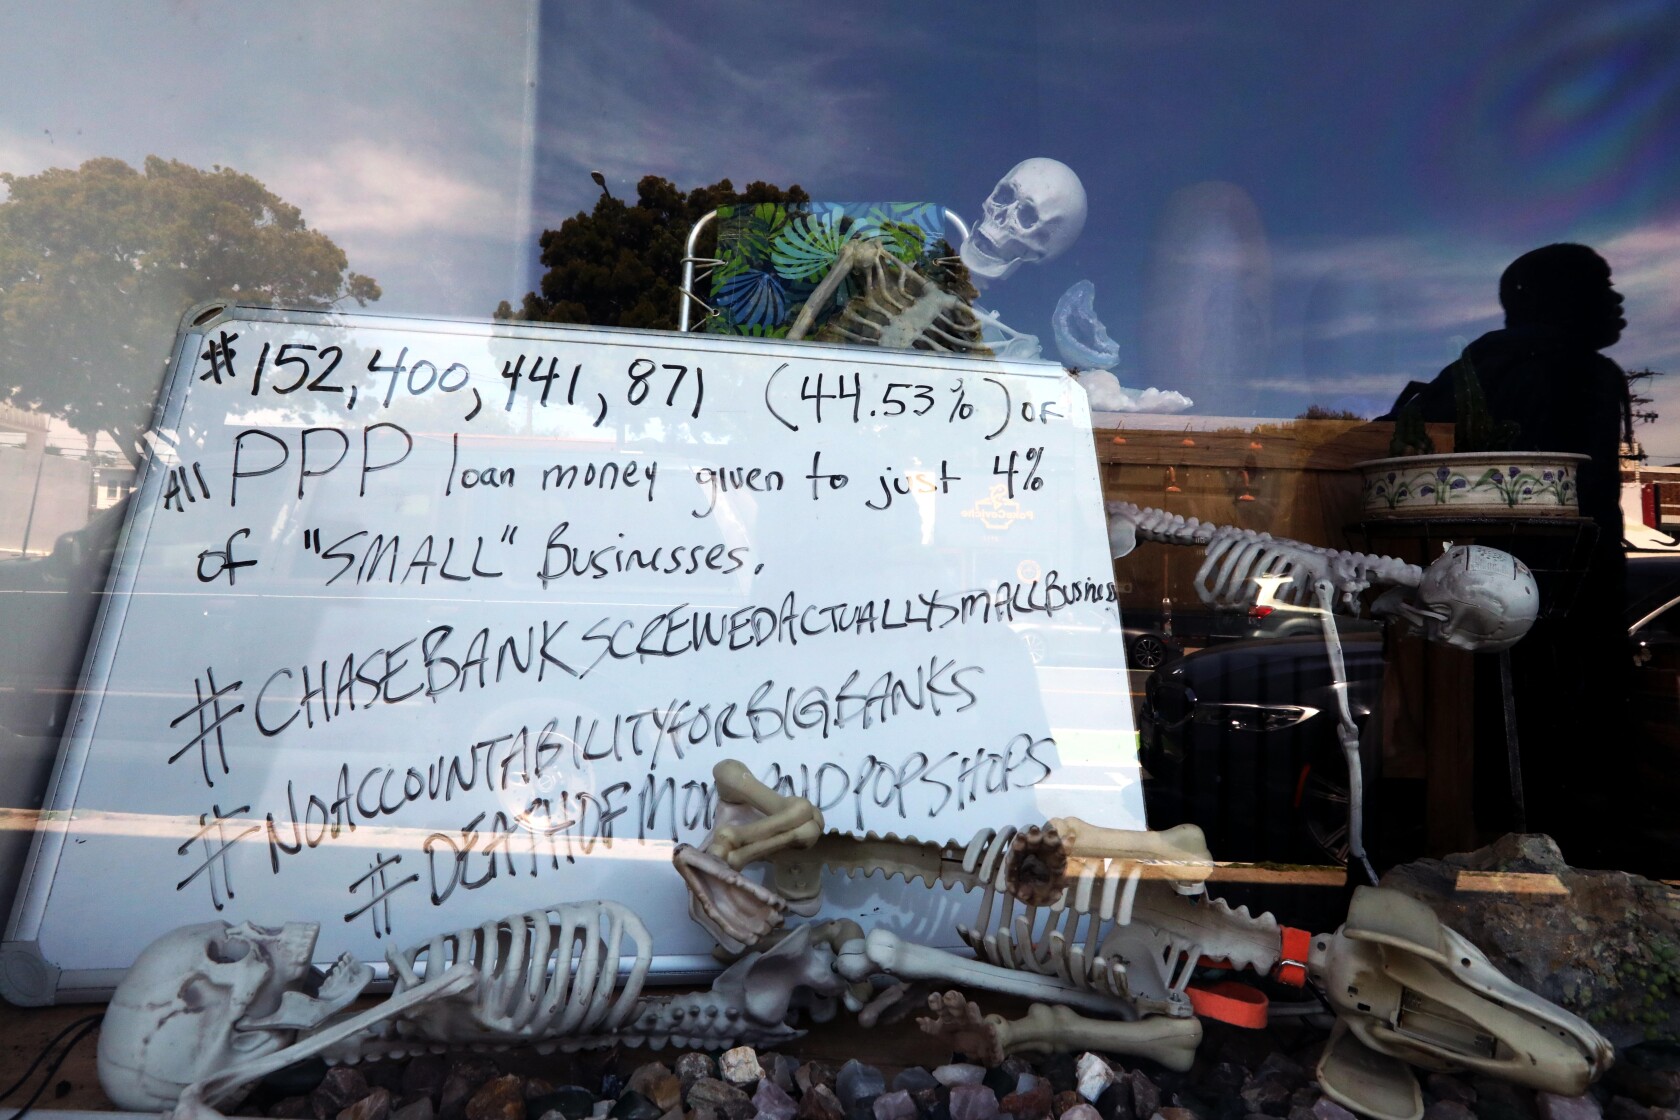 $152,400,441,871 (44.53%) of
All PPP loan money given to just 4%
of "SMALL" Businesses.
#CHASEBANKSCREWEDACTUALLYSMALLBusiness
#NOACCOUNTABILITYFORBIGBANKS
#DEATHOFMOMANDPOPSHOPS